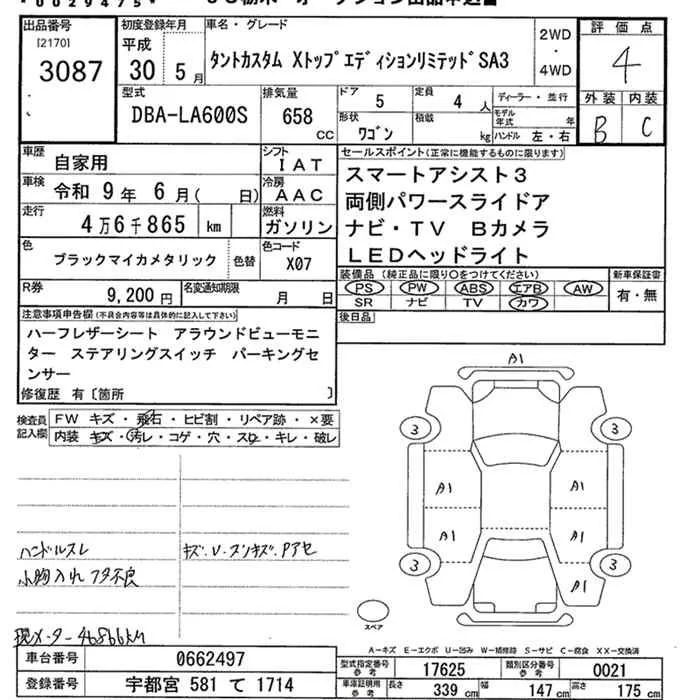 *0029475*
出品番号
[2170]
3087
初度登録年月
平成
30 5月
車名・グレード
タントカスタム XトップエディションリミテッドSA3
2WD
・
4WD
評価点
4
外装 内装
B C
型式
DBA-LA600S
排気量
658
CC
ドア
5
定員
4 人
ディーラー・並行
形状
ワゴン
積載
kg
モデル年式 年
ハンドル 左・右
車歴
自家用
シフト
IAT
車検
令和 9年 6月( 日)
冷房
AAC
走行
4万6千865 km
燃料
ガソリン
色
ブラックマイカメタリック
色替
色コード
X07
R券
9,200 円
名変通知期限
月 日
セールスポイント(正常に機能するものに限ります)
スマートアシスト3
両側パワースライドア
ナビ・TV Bカメラ
LEDヘッドライト
装備品(純正品に限り○をつけてください)
PS PW ABS エアB AW
SR ナビ TV カワ
新車保証書
有・無
後日品
注意事項申告欄(不具合内容等は具体的に記入して下さい)
ハーフレザーシート アラウンドビューモニ
ター ステアリングスイッチ パーキングセ
ンサー
修復歴 有〔箇所 〕
検査員
記入欄
FW キズ・飛石・ヒビ割・リペア跡・×要
内装 キズ・汚レ・コゲ・穴・スレ・キレ・破レ
ハンドルスレ
キズ.U.スンキズ.Pアセ
小物入れフタ不良
現メーター46866km
A1
3 3
A1 A1
A1 A1
3 3
A1
スペア
A-キズ E-エクボ U-凹み W-補修跡 S-サビ C-腐食 XX-交換済
車台番号
0662497
登録番号
宇都宮 581 て 1714
型式指定番号
参考
17625
類別区分番号
参考
0021
車庫証明用
参考
長さ 339 cm 幅 147 cm 高さ 175 cm